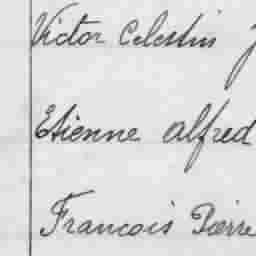 Victor Celestin
Etienne alfred
Francois Pierre